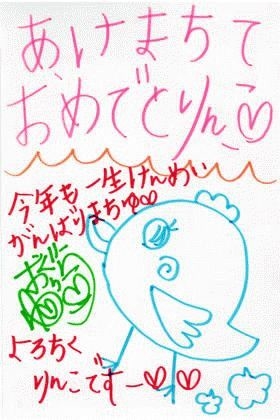 あけまちて
おめでとりんこ♡
今年も一生けんめい
がんばりまちゅ♡
よろちく
りんこですー♡♡